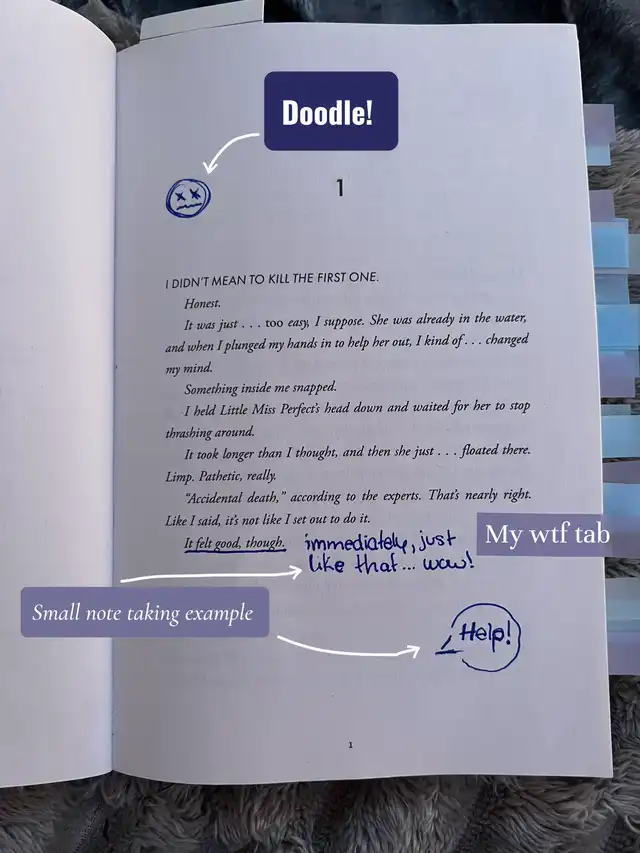 Doodle!
1
I DIDN'T MEAN TO KILL THE FIRST ONE.
Honest.
It was just . . . too easy, I suppose. She was already in the water,
and when I plunged my hands in to help her out, I kind of . . . changed
my mind.
Something inside me snapped.
I held Little Miss Perfect's head down and waited for her to stop
thrashing around.
It took longer than I thought, and then she just . . . floated there.
Limp. Pathetic, really.
“Accidental death,” according to the experts. That's nearly right.
Like I said, it's not like I set out to do it.
It felt good, though.
immediately, just
like that... wow!
My wtf tab
Small note taking example
Help!
1